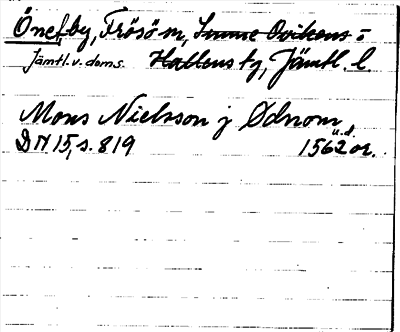 Önet, by, Frösö sn, Sunne Ovikens o
Jämtl. v. doms. Hallens tg, Jämtl. l.
Mons Nielsson j Ødnom,
u.d.
DN 15, s. 819 1562 or.